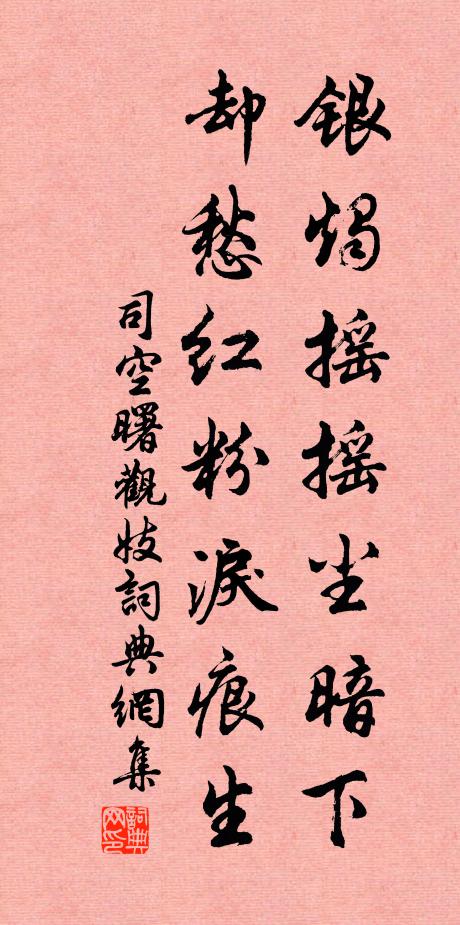 银烛摇摇尘暗下
却愁红粉淚痕生
司空曙觀妓詞典網集
詞典网印